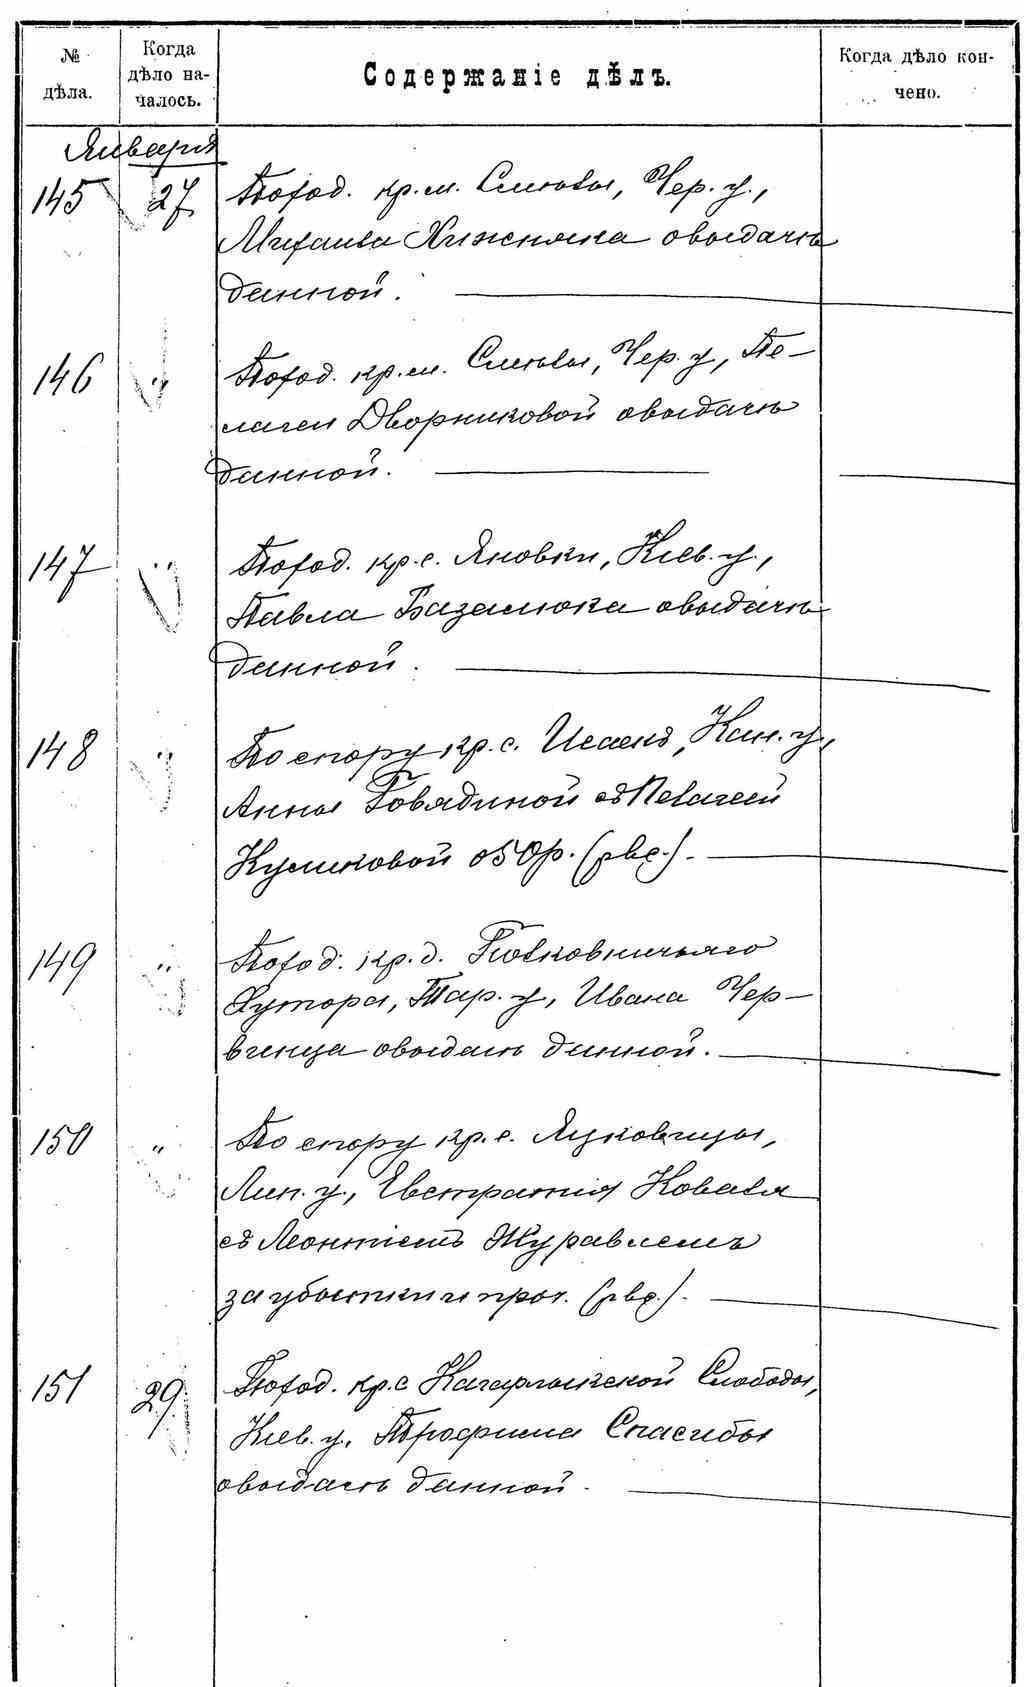 № дѣла.
Когда дѣло началось.
Содержаніе дѣлъ.
Когда дѣло кончено.
Января
145 27 По ход. кр. м. Смѣлы, Чер. у.,
Михаила Хижняка о выдачѣ
данной.
146 " По ход. кр. м. Смѣлы, Чер. у., Пе-
лагеи Дворниковой о выдачѣ
данной.
147 " По ход. кр. с. Яновки, Кіев. у.,
Павла Базалюка о выдачѣ
данной.
148 " По спору кр. с. Исаекъ, Кан. у.,
Анны Говядиной съ Пелагеей
Куликовой о 50 р.
149 " По ход. кр. д. Полковничьяго
Хутора, Тар. у., Ивана Чер-
венца о выдачѣ данной.
150 " По спору кр. с. Яцковицы,
Лип. у., Евстратія Коваля
съ Леонтіемъ Журавлемъ
за убытки и проч.
151 29 По ход. кр. с Кагарлыкской Слободы,
Кіев. у., Трофима Спасибы
о выдачѣ данной.